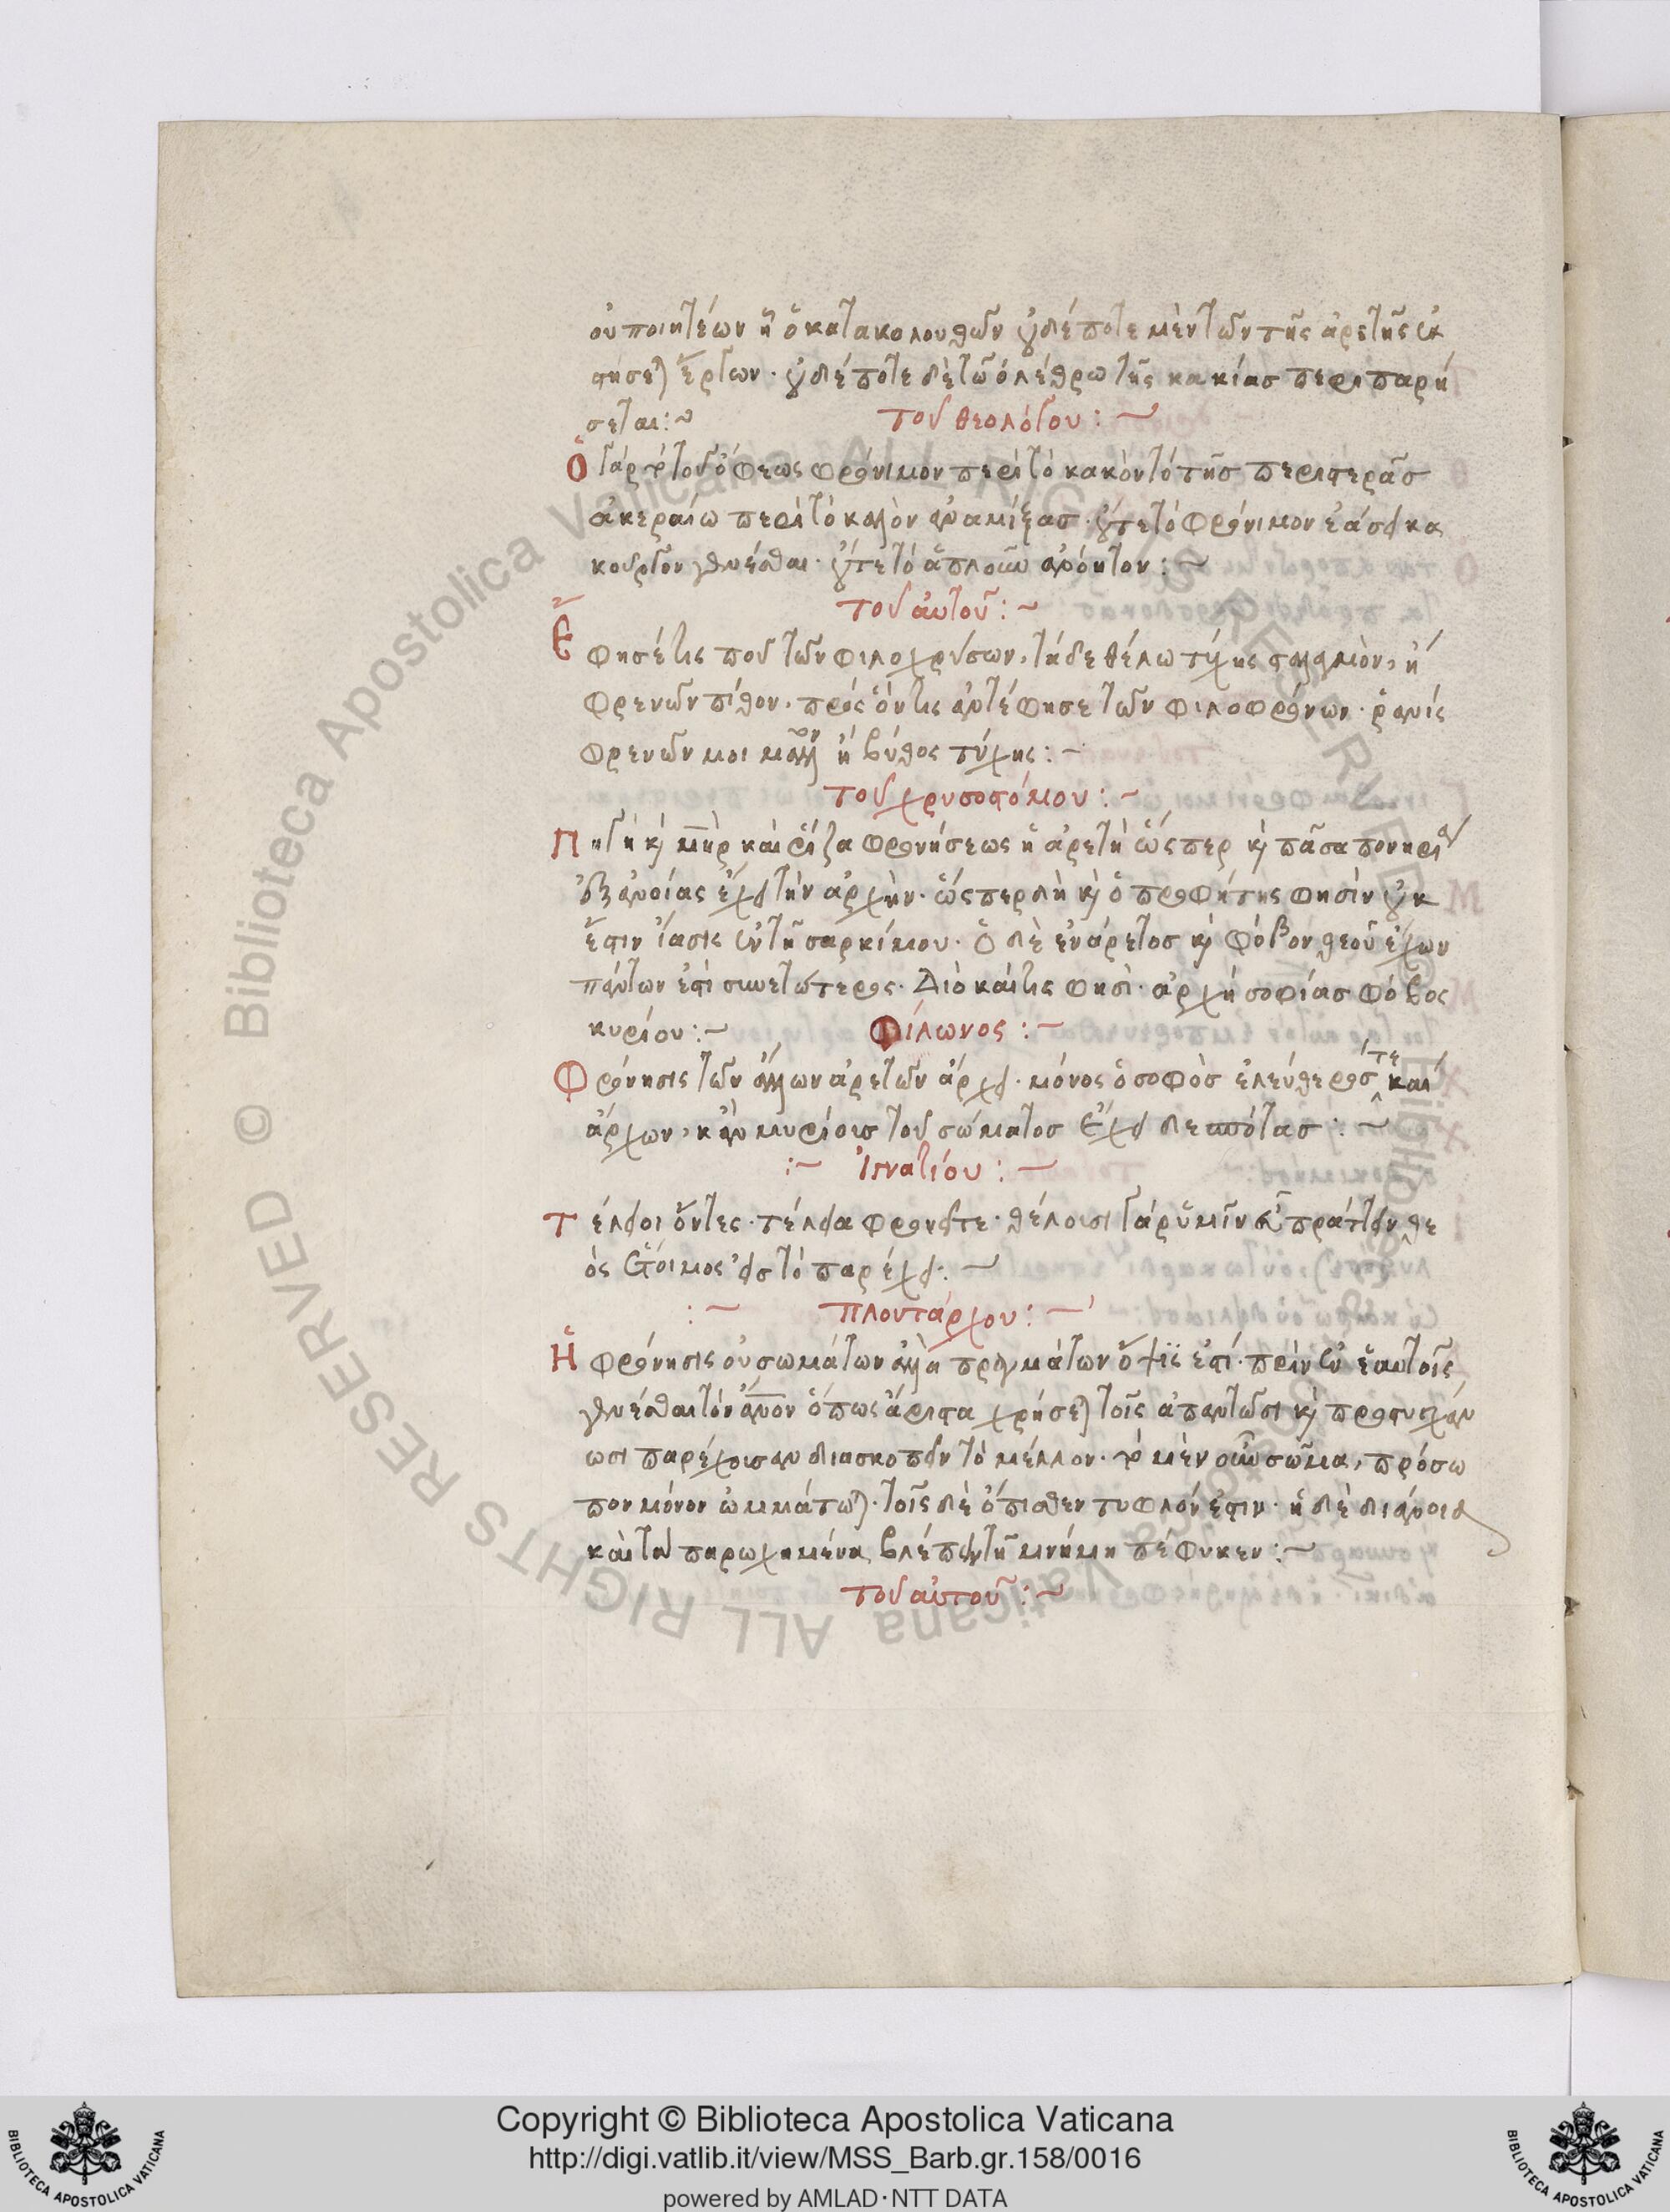 οὐ ποιητέων ἢ ὁ κατακολουθῶν οὐδέποτε μὲν τῶν τῆς ἀρετῆς ἐκ
στήσεται ἔργων· οὐδέποτε δὲ τῶ ὀλέθρω τῆς κακίας περιπαρή
σεται:~ τοῦ θεολόγου:~
Ὁ γάρ τὸ τοῦ ὄφεως φρόνιμον περὶ τὸ κακὸν τό τῆς περιστερᾶς
ἀκεραίω περὶ τὸ καλὸν ἀναμίξας· οὔτε τό φρόνιμον ἐάσει κα
κοῦργον γενέσθαι· οὔτε τό ἁπλοῦν ἀνόητον:~
τοῦ ἀυτοῦ:~
Ἔφησέ τις που τῶν φιλοχρύσων, τάδε θέλω τύχης σταλαγμὸν, ἤ
φρενῶν πίθον· πρός ὅν τις ἀντέφησε τῶν φιλοφρόνων· ῥανίς
φρενῶν μοι μᾶλλον ἤ βύθος τύχης:~
τοῦ χρυσοστόμου:~
Πηγὴ κ(αὶ) μ̅η̅ρ καὶ ῥίζα φρονήσεως ἡ ἀρετὴ ὥσπερ κ(αὶ) πᾶσα πονηρία
ἐξ ἀνοίας ἔχει τὴν ἀρχὴν· ὥσπερ δὴ κ(αὶ) ὁ προφήτης φησὶν οὐκ
ἔστιν ἴασις ἐν τῆ σαρκί μου· ὁ δὲ ἐνάρετος κ(αὶ) φόβον θεοῦ ἔχων
πάντων ἐστὶ συνετώτερος· Διὸ καί τις φησὶ· ἀρχή σοφίας φόβος
κυρίου:~ Φίλωνος:~
Φρόνησις τῶν ἄλλων ἀρετῶν ἄρχει· μόνος ὁ σοφὸς ἐλεύθερός τε καὶ
ἄρχων, κἂν μυρίους τοῦ σώματος ἔχει δεσπότας:~
:~ Ἰγνατίου:~
Τέλειοι ὄντες· τέλεια φρονεῖτε· θέλουσι γάρ ὑμῖν εὖ πράττειν θε
ὸς ἕτοιμος εἰς τὸ παρέχειν:~
:~ Πλουτάρχου:~
Ἡ φρόνησις οὐ σωμάτων ἀλλὰ πραγμάτων ὄψις ἐστί· πρὶν ἐν ἑαυτοῖς
γενέσθαι τὸν ἄ̅ν̅ο̅ν ὅπως ἄριστα χρήσεται τοῖς ἀπαντῶσι κ(αὶ) προστυγχάν
ωσι παρέχουσαν διασκοπεῖν τὸ μέλλον· τὸ μὲν οὖν σῶμα, πρόσω
πον μόνον ὠμμάτωται· τοῖς δὲ ὄπισθεν τυφλόν ἐστιν· ἡ δὲ διάνοια
καὶ τὰ παρωχημένα βλέπειν τῆ μνήμη πέφυκεν:~
τοῦ αὐτοῦ:~
Copyright © Biblioteca Apostolica Vaticana
http://digi.vatlib.it/view/MSS_Barb.gr.158/0016
powered by AMLAD·NTT DATA
BIBLIOTECA APOSTOLICA VATICANA
BIBLIOTECA APOSTOLICA VATICANA
Biblioteca Apostolica Vaticana ALL RIGHTS RESERVED ©
Biblioteca Apostolica Vaticana ALL RIGHTS RESERVED ©